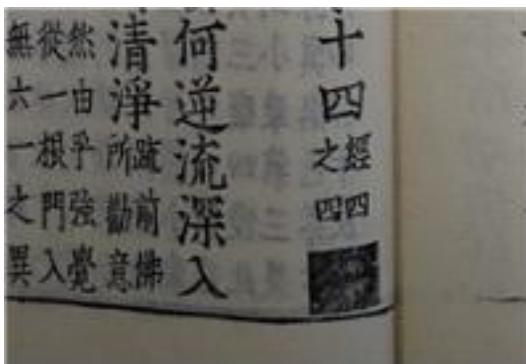 十四經四之四
何逆流深入
清淨疏前佛所勸意
然由乎強覺
從一根門入
無六一之異